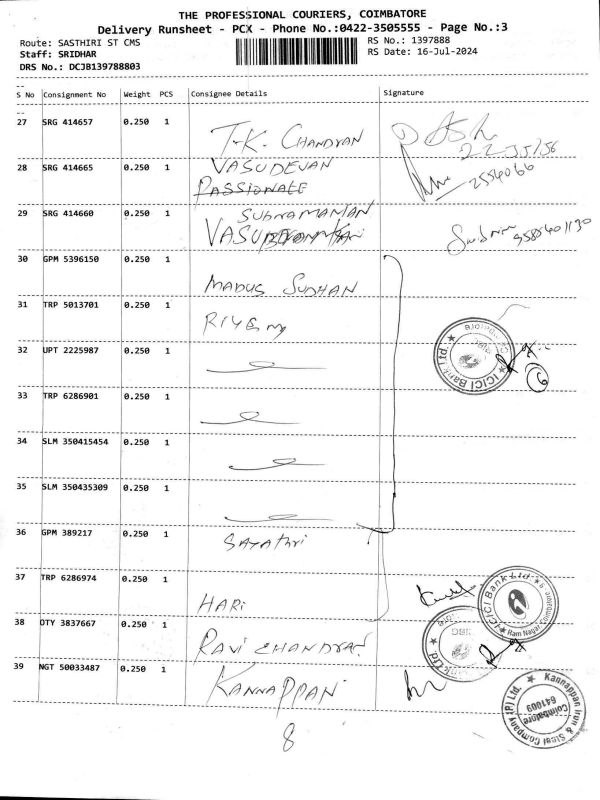 THE PROFESSIONAL COURIERS, COIMBATORE
Delivery Runsheet - PCX - Phone No.:0422-3505555 - Page No.:3
Route: SASTHIRI ST CMS
RS No.: 1397888
Staff: SRIDHAR
RS Date: 16-Jul-2024
DRS No.: DCJB139788803
S No Consignment No Weight PCS Consignee Details Signature
27 SRG 414657 0.250 1 T-K. CHANDVAN
28 SRG 414665 0.250 1 VASUDEVAN 2554066
PASSIONATE
29 SRG 414660 0.250 1 SUBNAMANIAN
30 GPM 5396150 0.250 1 MADUS SUDHAN
31 TRP 5013701 0.250 1
32 UPT 2225987 0.250 1
ICICI Bank Ltd.
33 TRP 6286901 0.250 1
34 SLM 350415454 0.250 1
35 SLM 350435309 0.250 1
36 GPM 389217 0.250 1 SAYAThri
37 TRP 6286974 0.250 1 HARi
ICICI Bank Ltd. Ram Nagar Coimbatore - 9
38 OTY 3837667 0.250 1 RAVI CHANDVAN
39 NGT 50033487 0.250 1 KANNAPPAN
Kannappan Iron & Steel Company (P) Ltd. Coimbatore 641009
8